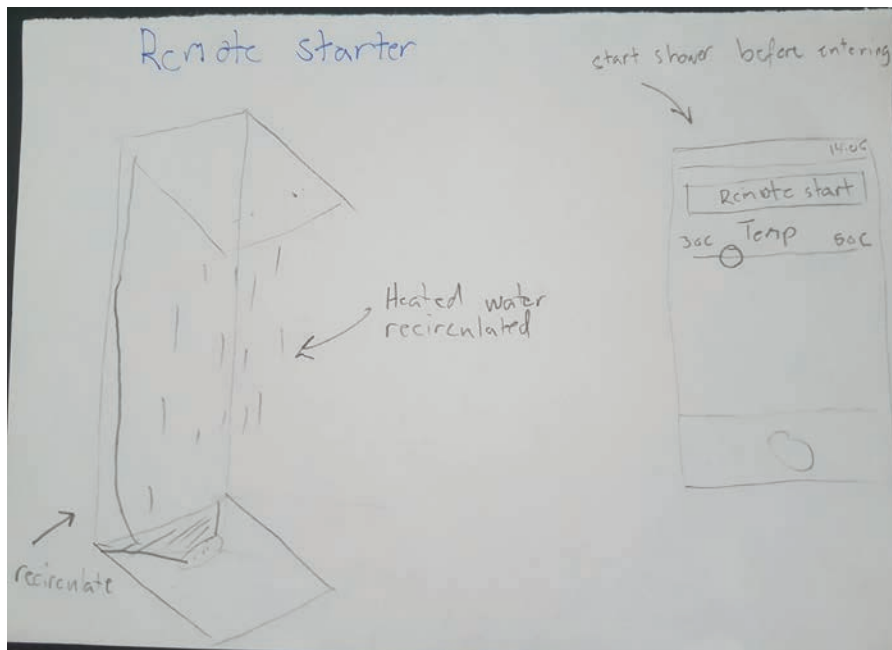 Remote starter
start shower before entering
14:06
Remote start
Temp
30C 50C
Heated water
recirculated
recirculate